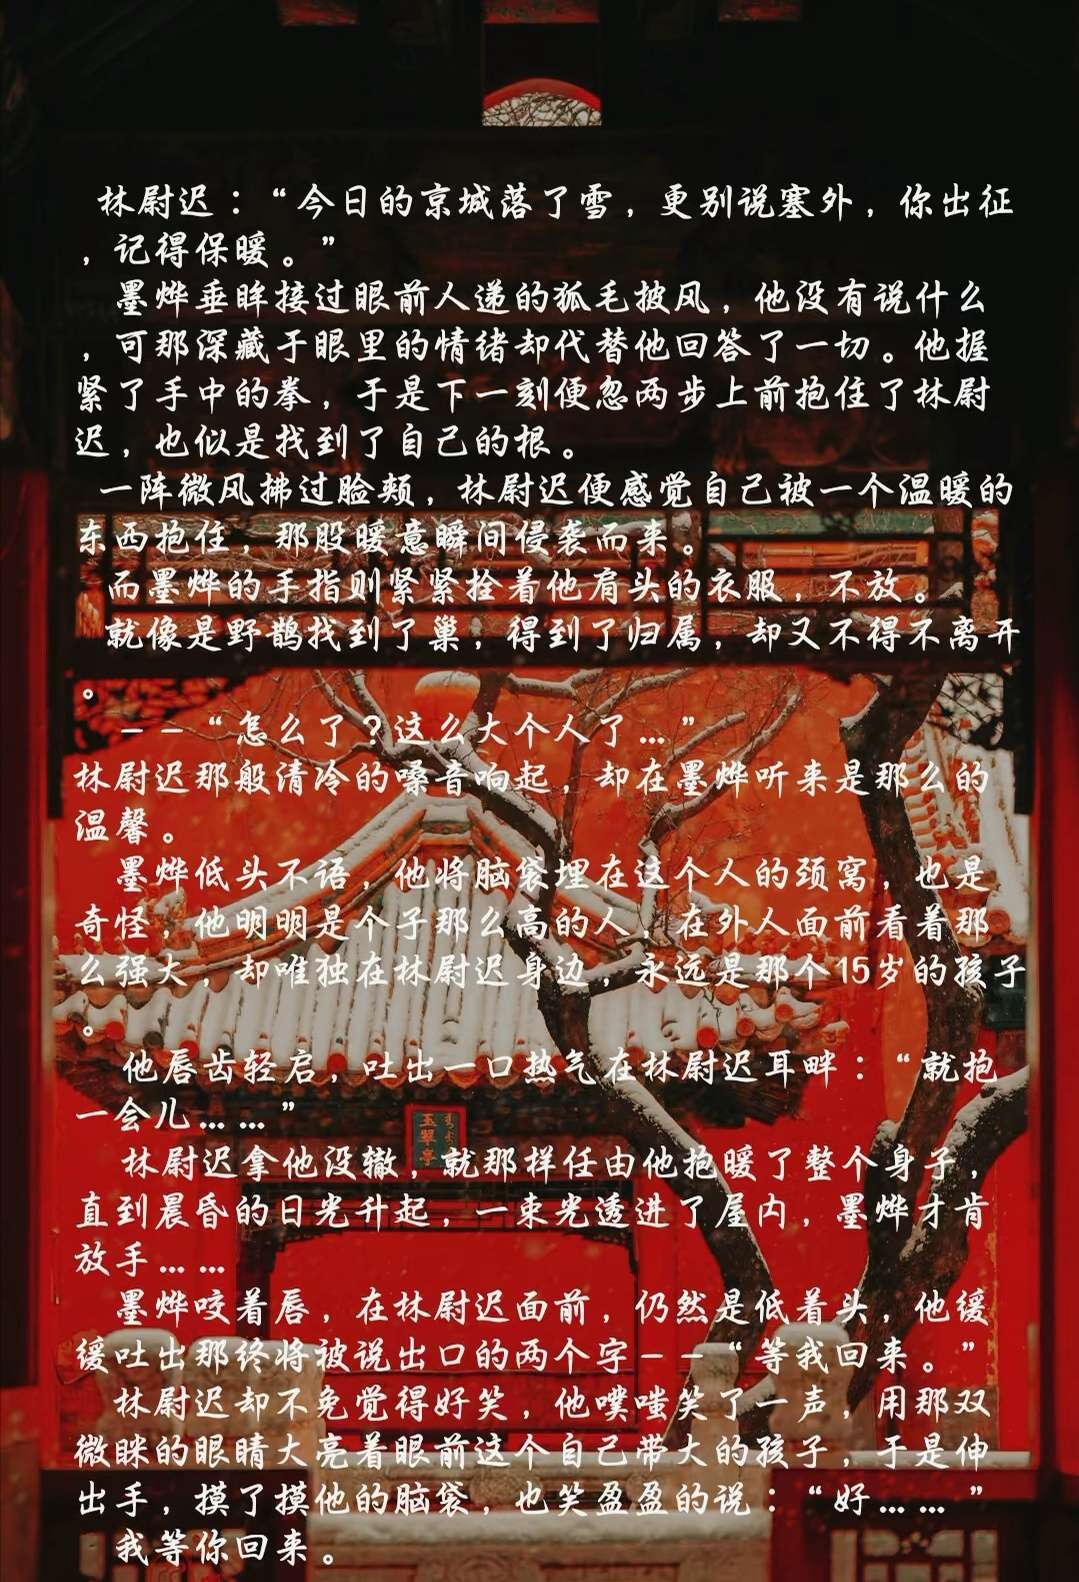 林尉迟：“今日的京城落了雪，更别说塞外，你出征
，记得保暖。”
墨烨垂眸接过眼前人递的狐毛披风，他没有说什么
，可那深藏于眼里的情绪却代替他回答了一切。他握
紧了手中的拳，于是下一刻便忽两步上前抱住了林尉
迟，也似是找到了自己的根。
一阵微风拂过脸颊，林尉迟便感觉自己被一个温暖的
东西抱住，那股暖意瞬间侵袭而来。
而墨烨的手指则紧紧拴着他肩头的衣服，不放。
就像是野鹊找到了巢，得到了归属，却又不得不离开
。
——“怎么了？这么大个人了...”
林尉迟那般清冷的嗓音响起，却在墨烨听来是那么的
温馨。
墨烨低头不语，他将脑袋埋在这个人的颈窝，也是
奇怪，他明明是个子那么高的人，在外人面前看着那
么强大，却唯独在林尉迟身边，永远是那个15岁的孩子
。
他唇齿轻启，吐出一口热气在林尉迟耳畔：“就抱
一会儿……”
玉翠亭
林尉迟拿他没辙，就那样任由他抱暖了整个身子，
直到晨昏的日光升起，一束光透进了屋内，墨烨才肯
放手……
墨烨咬着唇，在林尉迟面前，仍然是低着头，他缓
缓吐出那终将被说出口的两个字——“等我回来。”
林尉迟却不免觉得好笑，他噗嗤笑了一声，用那双
微眯的眼睛大亮着眼前这个自己带大的孩子，于是伸
出手，摸了摸他的脑袋，也笑盈盈的说：“好……”
我等你回来。